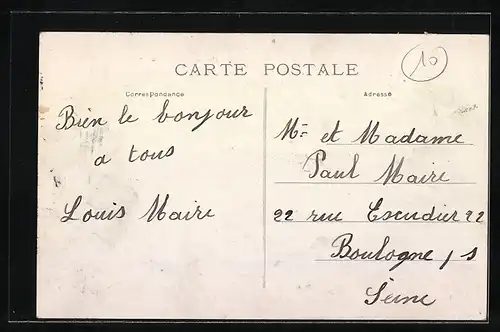 10
CARTE POSTALE
Correspondance
Adresse
Bien le bonjour
a tous
Louis Maire
Mr et Madame
Paul Maire
22 rue Escudier 22
Boulogne / s
Seine